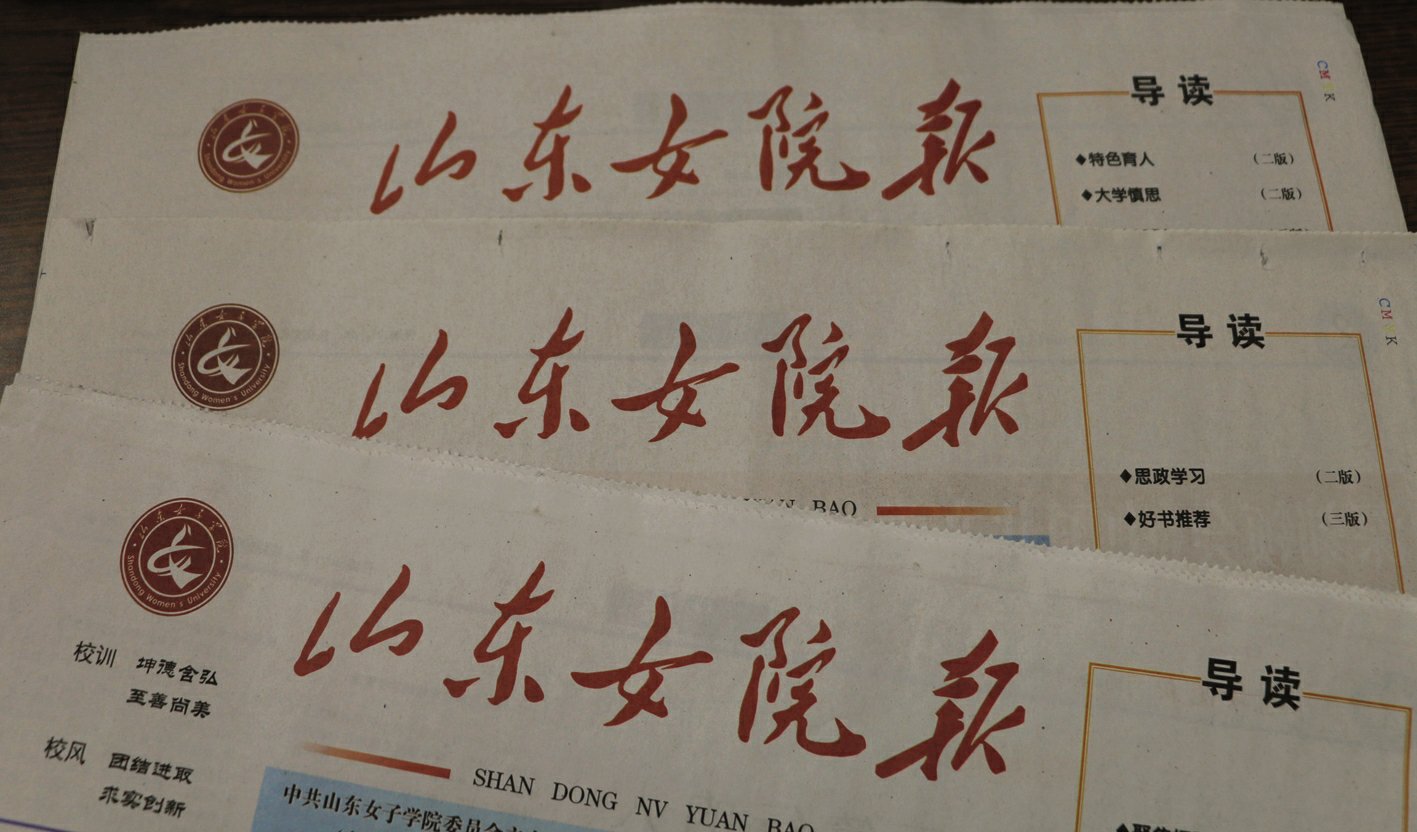 山东女子学院
Shandong Women's University
山东女院报
导读
◆特色育人 (二版)
◆大学慎思 (二版)
CMYK
山东女子学院
Shandong Women's University
山东女院报
BAO
导读
◆思政学习 (二版)
◆好书推荐 (三版)
CMYK
山东女子学院
Shandong Women's University
校训 坤德含弘
至善尚美
校风 团结进取
求实创新
山东女院报
SHAN DONG NV YUAN BAO
中共山东女子学院委员会
导读